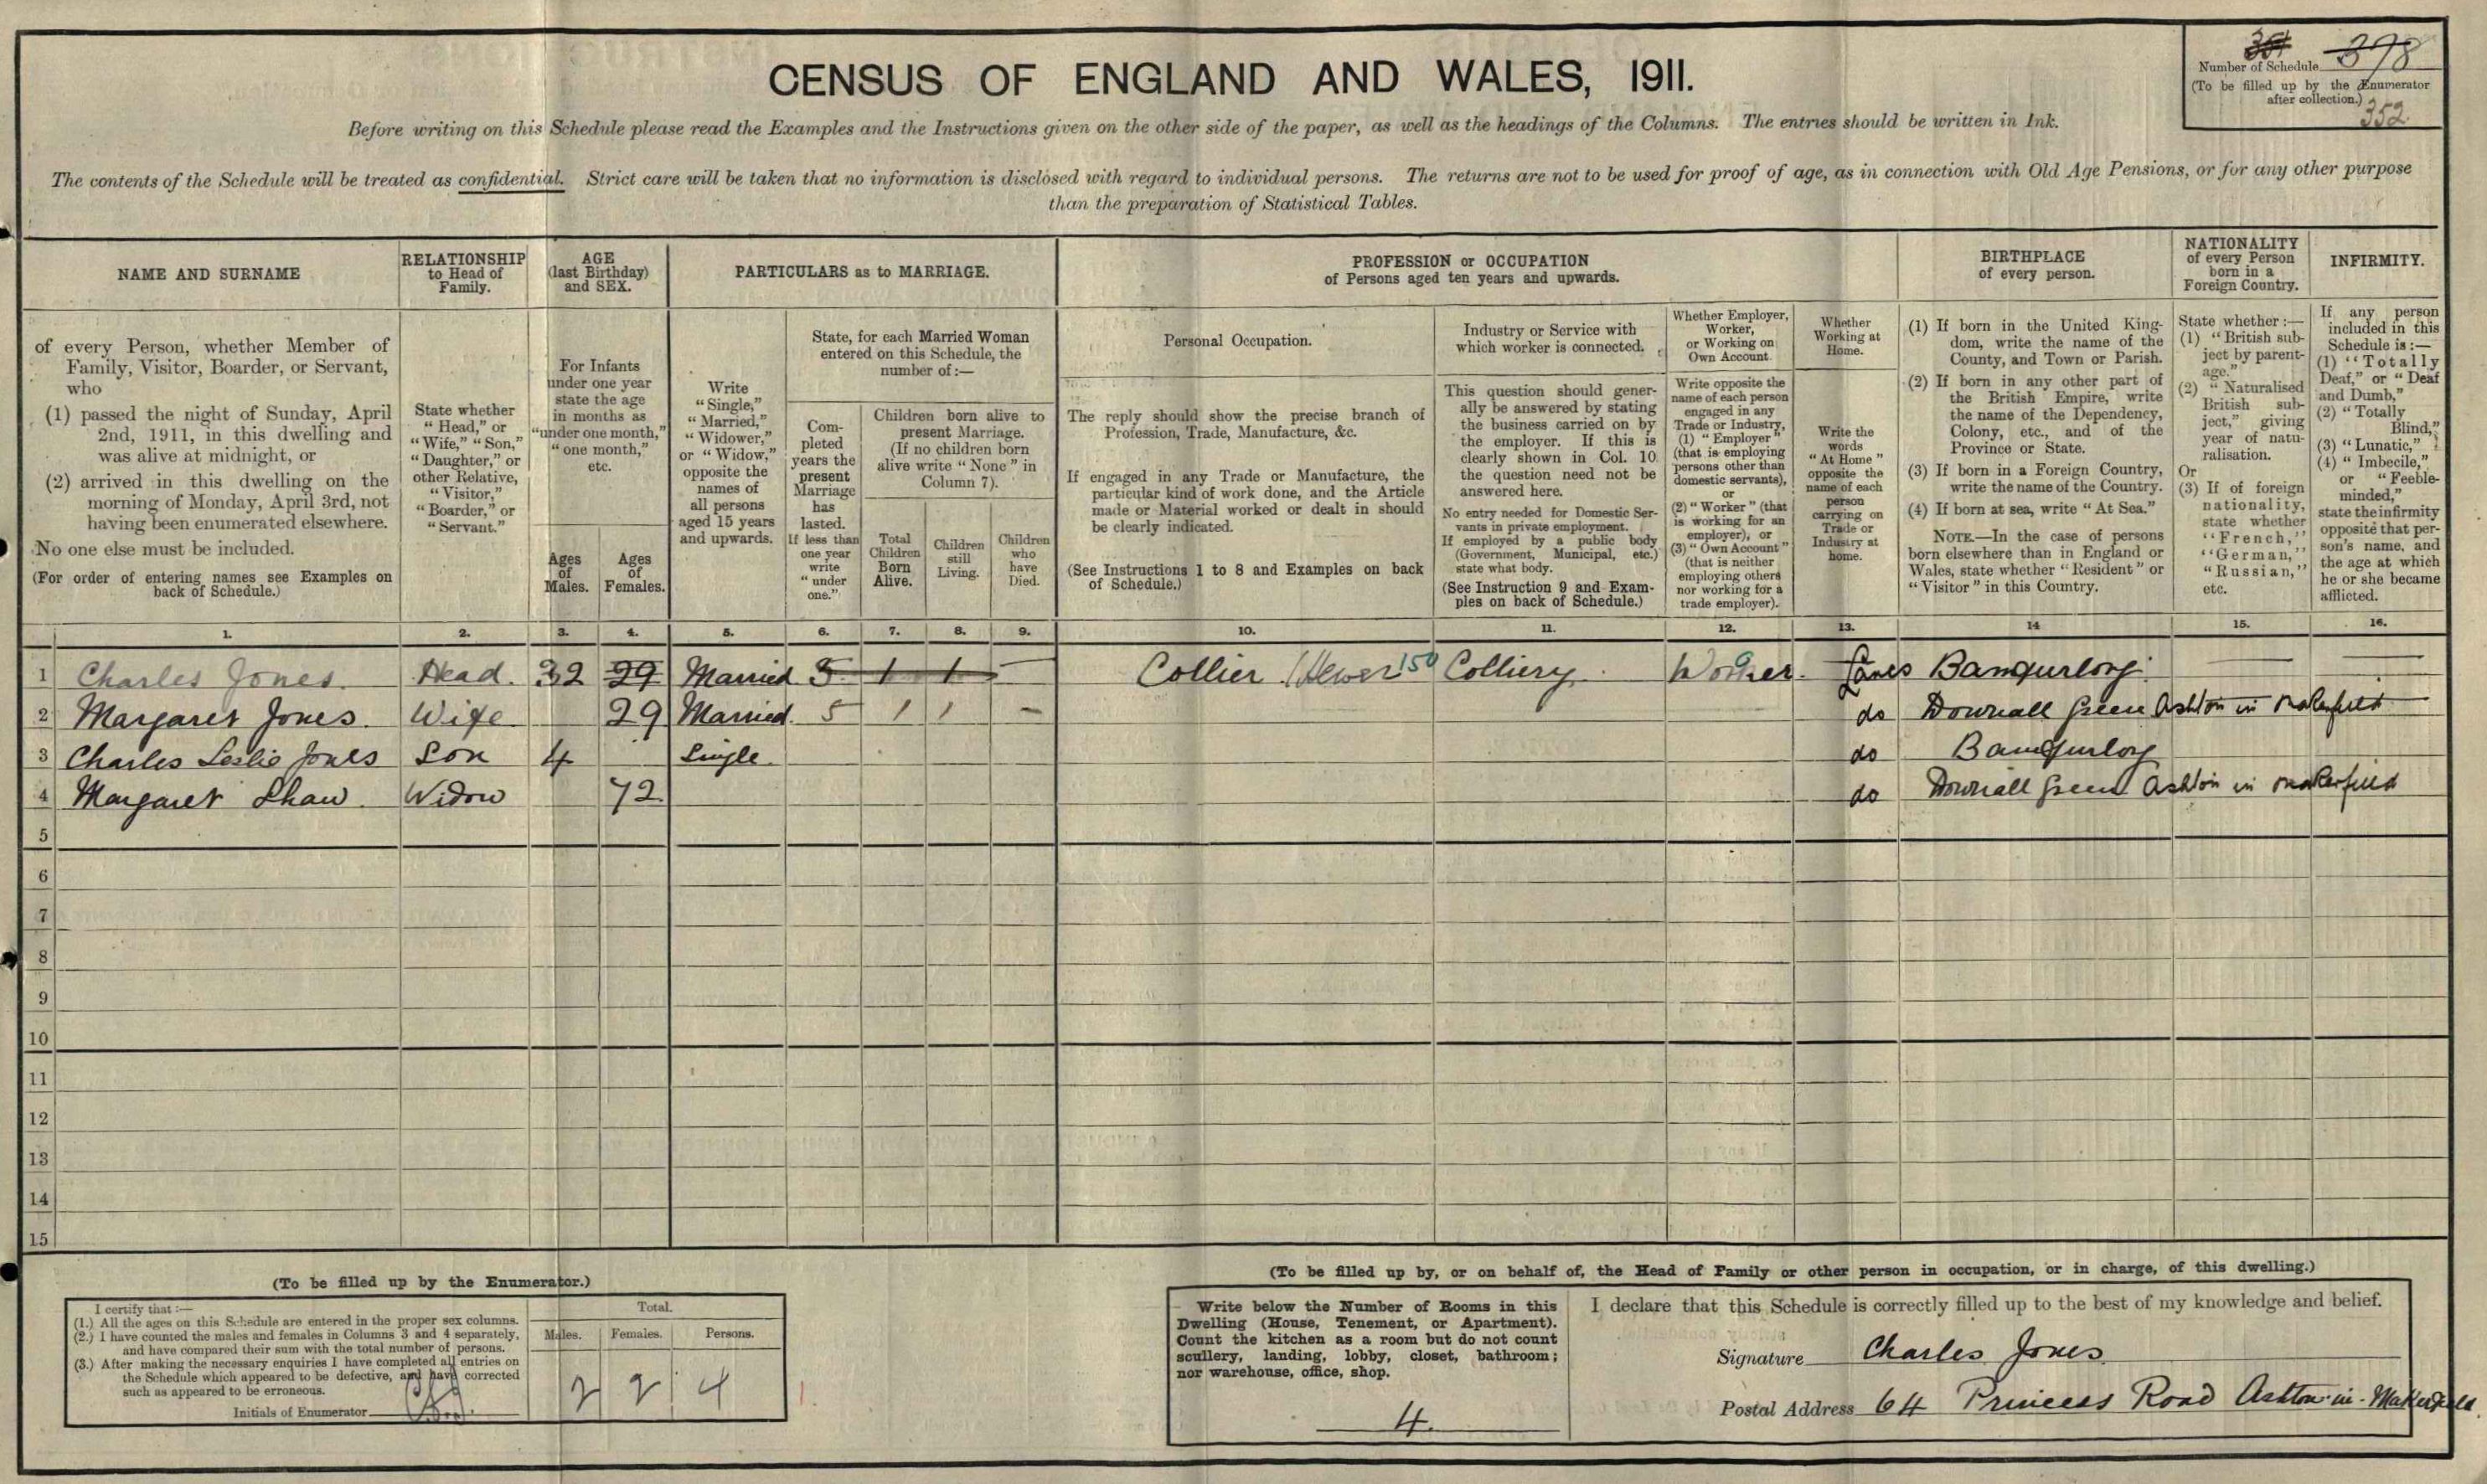 398
Number of Schedule
(To be filled up by the Enumerator
after collection.)
352
CENSUS OF ENGLAND AND WALES, 1911.
Before writing on this Schedule please read the Examples and the Instructions given on the other side of the paper, as well as the headings of the Columns. The entries should be written in Ink.
The contents of the Schedule will be treated as confidential. Strict care will be taken that no information is disclosed with regard to individual persons. The returns are not to be used for proof of age, as in connection with Old Age Pensions, or for any other purpose
than the preparation of Statistical Tables.
NAME AND SURNAME
RELATIONSHIP
to Head of
Family.
AGE
(last Birthday)
and SEX.
PARTICULARS as to MARRIAGE.
PROFESSION or OCCUPATION
of Persons aged ten years and upwards.
BIRTHPLACE
of every person.
NATIONALITY
of every Person
born in a
Foreign Country.
INFIRMITY.
of every Person, whether Member of
Family, Visitor, Boarder, or Servant,
who
(1) passed the night of Sunday, April
2nd, 1911, in this dwelling and
was alive at midnight, or
(2) arrived in this dwelling on the
morning of Monday, April 3rd, not
having been enumerated elsewhere.
No one else must be included.
(For order of entering names see Examples on
back of Schedule.)
State whether
"Head," or
"Wife," "Son,"
"Daughter," or
other Relative,
"Visitor,"
"Boarder," or
"Servant."
For Infants
under one year
state the age
in months as
"under one month,"
"one month,"
etc.
Ages
of
Males.
Ages
of
Females.
Write
"Single,"
"Married,"
"Widower,"
or "Widow,"
opposite the
names of
all persons
aged 15 years
and upwards.
State, for each Married Woman
entered on this Schedule, the
number of :—
Com-
pleted
years the
present
Marriage
has
lasted.
If less than
one year
write
"under
one."
Children born alive to
present Marriage.
(If no children born
alive write "None" in
Column 7).
Total
Children
Born
Alive.
Children
still
Living.
Children
who
have
Died.
Personal Occupation.
The reply should show the precise branch of
Profession, Trade, Manufacture, &c.
If engaged in any Trade or Manufacture, the
particular kind of work done, and the Article
made or Material worked or dealt in should
be clearly indicated.
(See Instructions 1 to 8 and Examples on back
of Schedule.)
Industry or Service with
which worker is connected.
This question should gener-
ally be answered by stating
the business carried on by
the employer. If this is
clearly shown in Col. 10
the question need not be
answered here.
No entry needed for Domestic Ser-
vants in private employment.
If employed by a public body
(Government, Municipal, etc.)
state what body.
(See Instruction 9 and Exam-
ples on back of Schedule.)
Whether Employer,
Worker,
or Working on
Own Account.
Write opposite the
name of each person
engaged in any
Trade or Industry,
(1) "Employer"
(that is employing
persons other than
domestic servants),
or
(2) "Worker" (that
is working for an
employer), or
(3) "Own Account"
(that is neither
employing others
nor working for a
trade employer).
Whether
Working at
Home.
Write the
words
"At Home"
opposite the
name of each
person
carrying on
Trade or
Industry at
home.
(1) If born in the United King-
dom, write the name of the
County, and Town or Parish.
(2) If born in any other part of
the British Empire, write
the name of the Dependency,
Colony, etc., and of the
Province or State.
(3) If born in a Foreign Country,
write the name of the Country.
(4) If born at sea, write "At Sea."
NOTE.—In the case of persons
born elsewhere than in England or
Wales, state whether "Resident" or
"Visitor" in this Country.
State whether :—
(1) "British sub-
ject by parent-
age."
(2) "Naturalised
British sub-
ject," giving
year of natu-
ralisation.
Or
(3) If of foreign
nationality,
state whether
"French,"
"German,"
"Russian,"
etc.
If any person
included in this
Schedule is :—
(1) "Totally
Deaf," or "Deaf
and Dumb,"
(2) "Totally
Blind,"
(3) "Lunatic,"
(4) "Imbecile,"
or "Feeble-
minded,"
state the infirmity
opposite that per-
son's name, and
the age at which
he or she became
afflicted.
1. 2. 3. 4. 5. 6. 7. 8. 9. 10. 11. 12. 13. 14 15. 16.
1 Charles Jones Head. 32 29 Married 5 1 1 - Collier Hewer 150 Colliery Worker. Lancs
2 Margaret Jones Wife 29 Married 5 1 1 - do Downall Green Ashton in Makerfield
3 Charles Leslie Jones Son 4 Single do
4 Margaret Shaw Widow 72 do Downall Green Ashton in Makerfield
5
6
7
8
9
10
11
12
13
14
15
(To be filled up by the Enumerator.)
I certify that :—
(1.) All the ages on this Schedule are entered in the proper sex columns.
(2.) I have counted the males and females in Columns 3 and 4 separately,
and have compared their sum with the total number of persons.
(3.) After making the necessary enquiries I have completed all entries on
the Schedule which appeared to be defective, and have corrected
such as appeared to be erroneous.
Initials of Enumerator
Total.
Males. Females. Persons.
2 2 4
(To be filled up by, or on behalf of, the Head of Family or other person in occupation, or in charge, of this dwelling.)
Write below the Number of Rooms in this
Dwelling (House, Tenement, or Apartment).
Count the kitchen as a room but do not count
scullery, landing, lobby, closet, bathroom;
nor warehouse, office, shop.
4.
I declare that this Schedule is correctly filled up to the best of my knowledge and belief.
Signature Charles Jones
Postal Address 64 Princess Road Ashton-in-Makerfield